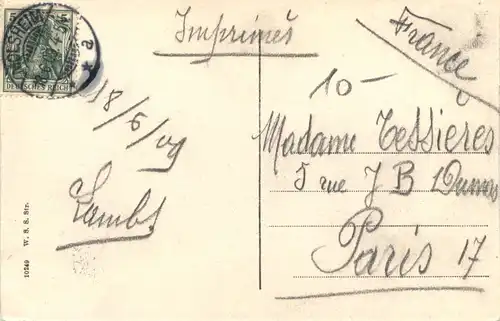 5 5
DEUTSCHES REICH
* a
Imprimés
France
10-
18/6/09
Madame Tessieres
5 rue J B Dumas
Paris 17
10549 W. S. S. Str.